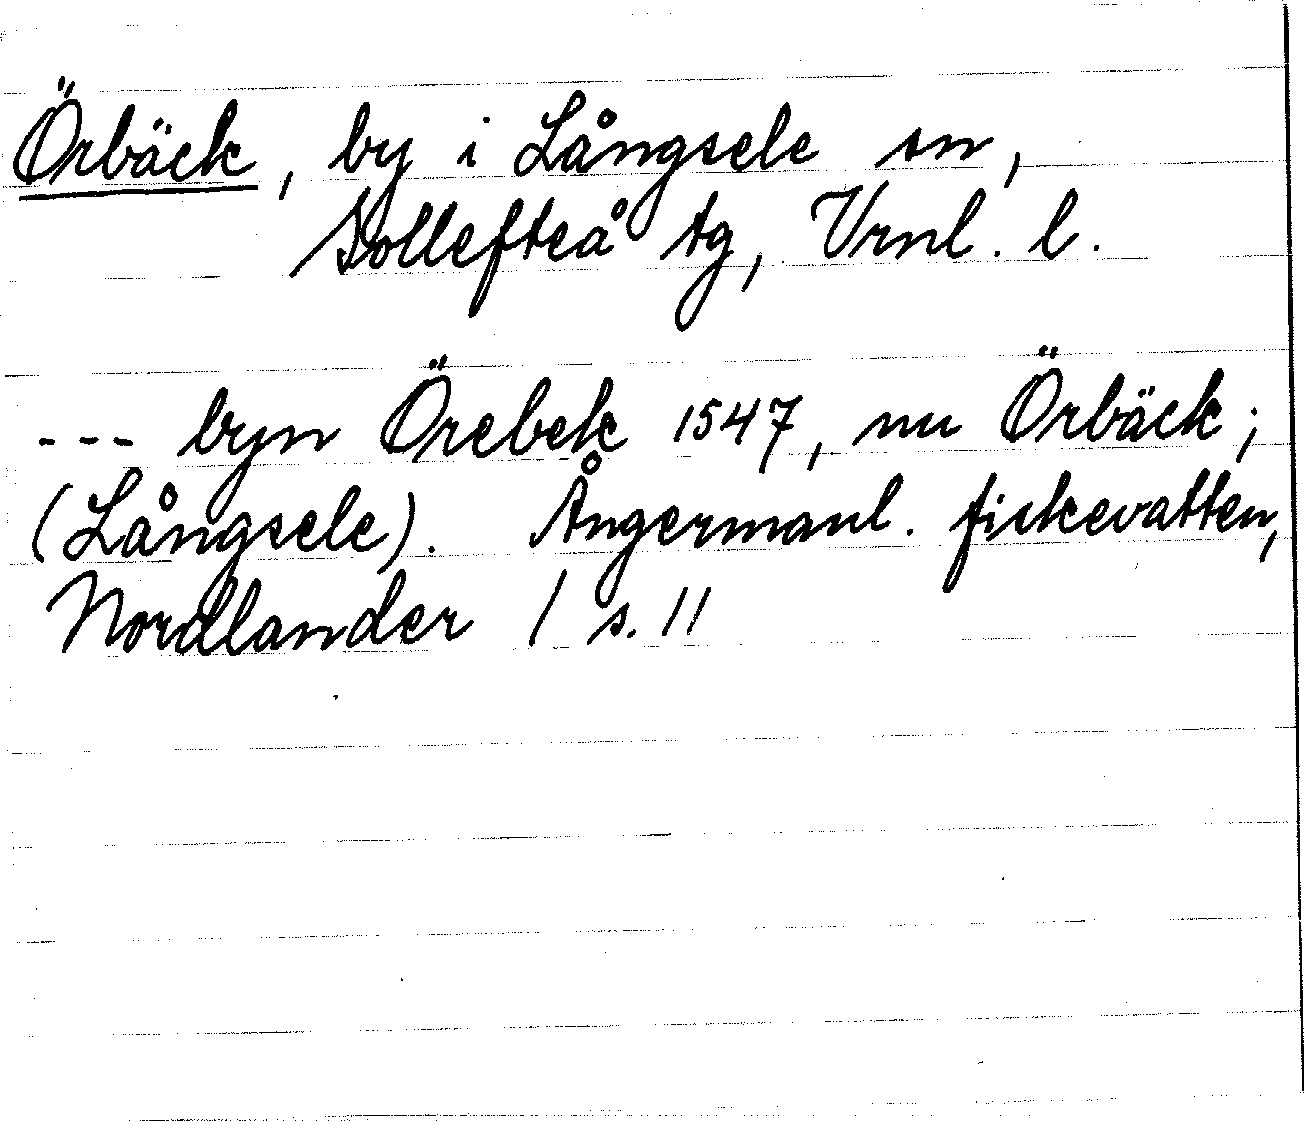 Örbäck, by i Långsele sn,
Sollefteå tg, Vrnl. l.
--- byn Örebek 1547, nu Örbäck;
(Långsele). Ångermanl. fiskevatten,
Nordlander I s. 11